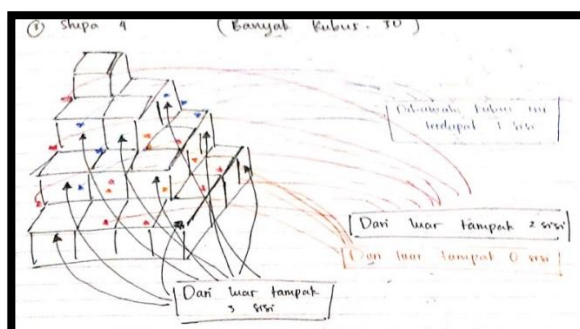 ③ Stupa 4 (Banyak kubus = 30)
Dibawah kubus ini
terdapat 1 sisi
Dari luar tampak 2 sisi
Dari luar tampak 0 sisi
Dari luar tampak
3 sisi